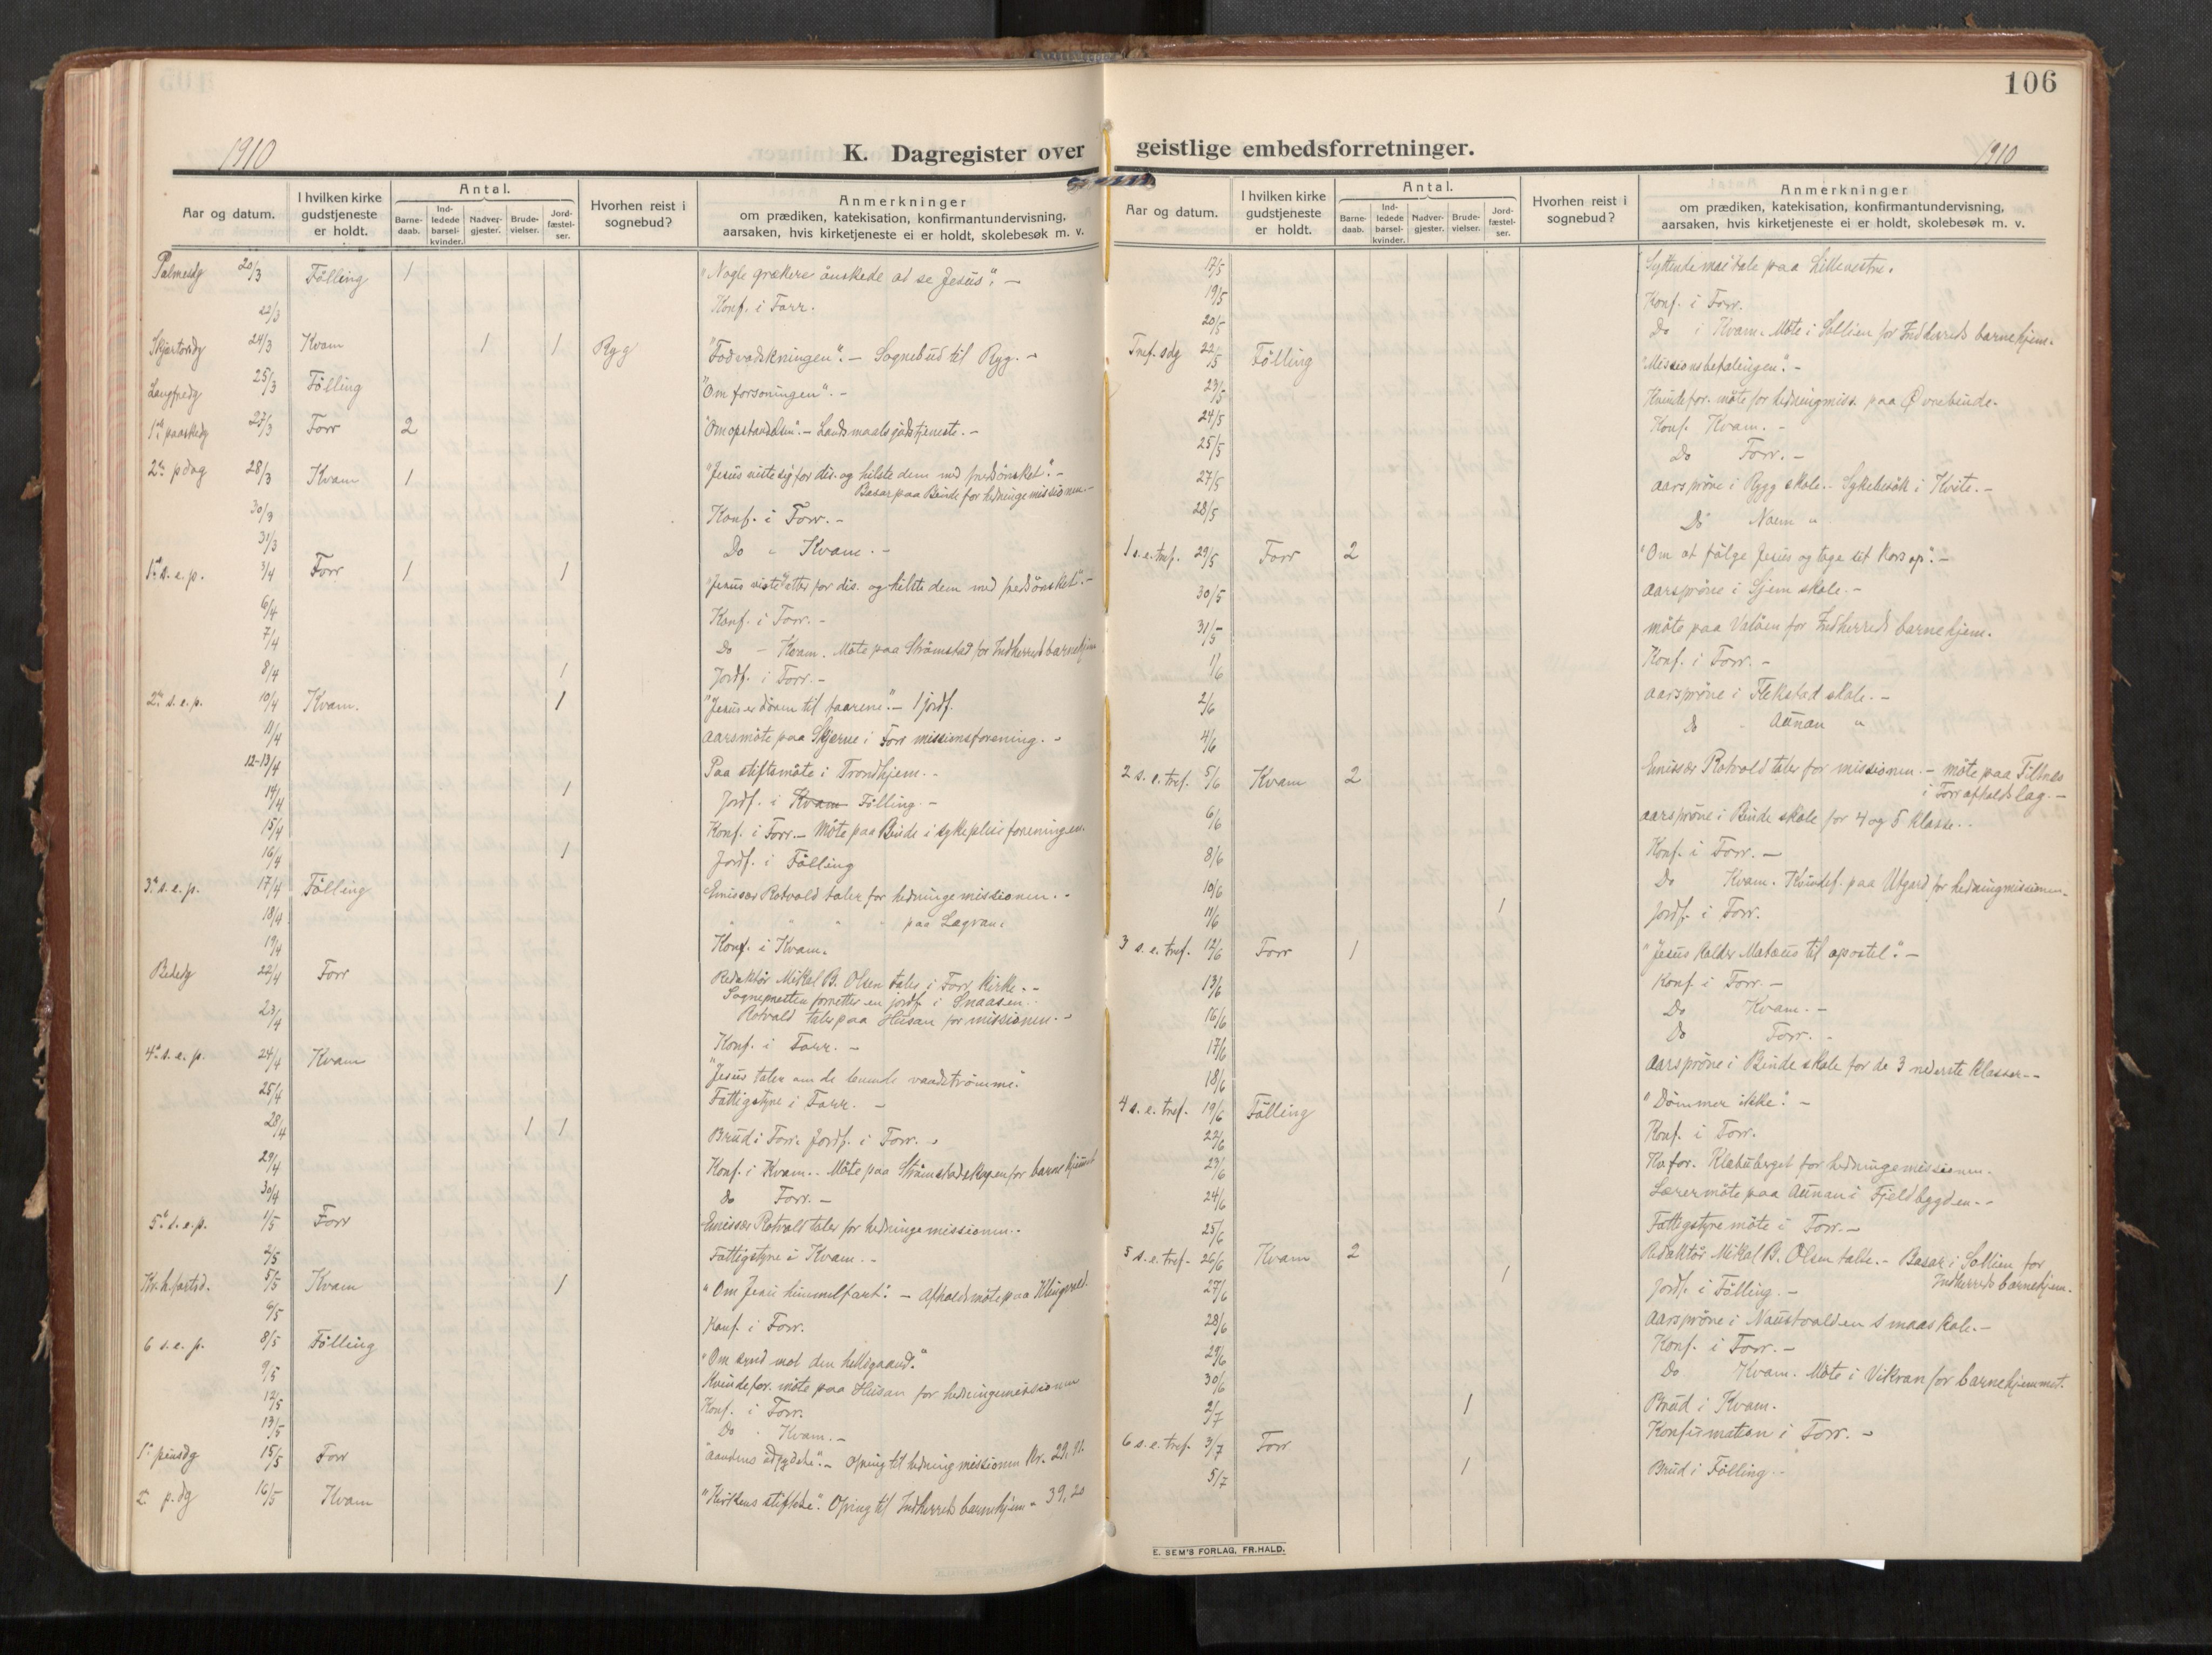 106
1910
K. Dagregister over geistlige embedsforretninger.
1910
Aar og datum. I hvilken kirke gudstjeneste er holdt. Antal. Barne-daab. Ind-ledede barsel-kvinder. Nadver-gjester. Brude-vielser. Jord-fæstel-ser. Hvorhen reist i sognebud? Anmerkninger om prædiken, katekisation, konfirmantundervisning, aarsaken, hvis kirketjeneste ei er holdt, skolebesøk m. v.
Palmesdg 20/3 Følling 1 "Nogle grækere ønskede at se Jesus". —
22/3 Konf. i Forr.
Skjærtorsdg 24/3 Kvam 1 1 Ryg "Fodvadskningen". — Sognebud til Ryg. —
Langfredg 25/3 Følling "Om forsoningen". —
1ste paaskedg 27/3 Forr 2 "Om opstandelsen". — Landsmaalsgudstjeneste. —
2den pdag 28/3 Kvam 1 "Jesus viste sig for dis. og hilste dem med fredsønsket". —
Basar paa Binde for hedningemissionen. —
30/3 Konf. i Forr. —
31/3 Do " Kvam. —
1ste s. e. p. 3/4 Forr 1 1 "Jesus viste sig for dis. og hilste dem med fredsønsket". —
6/4 Konf. i Forr. —
7/4 Do — Kvam. Møte paa Strømstad for Indherreds barnehjem
8/4 1 Jordf. i Forr. —
2den s. e. p. 10/4 Kvam. 1 "Jesus er døren til faarene". — 1 jordf.
11/4 Aarsmøte paa Skjerve i Forr missionsforening. —
12-13/4 Paa stiftsmøte i Trondhjem. —
14/4 1 Jordf. i Kvam Følling. —
15/4 Konf. i Forr. — Møte paa Binde i sykepleieforeningen.
16/4 1 Jordf. i Følling
3die s. e. p. 17/4 Følling Emissær Rotvold taler for hedningemissionen. —
18/4 " " " " paa Lagran.
19/4 Konf. i Kvam.
Bededg 22/4 Forr Redaktør Mikal B. Olsen taler i Forr kirke. —
Sognepresten forretter en jordf. i Snaasen. —
23/4 Rotvold taler paa Husan for missionen. —
Konf. i Forr. —
4de s. e. p. 24/4 Kvam "Jesus taler om de levende vandstrømme."
25/4 Fattigstyre i Forr. —
28/4 1 1 Brud i Forr. Jordf. i Forr. —
29/4 Konf. i Kvam. — Møte paa for barnehjemmet
30/4 Do Forr. —
5te s. e. p. 1/5 Forr Emissær Rotvold taler for hedningemissionen. —
2/5 Fattigstyre i Kvam. —
Kr. h.fartsd. 5/5 Kvam 1 "Om Jesu himmelfart". — Afholdsmøte paa
6/5 Konf. i Forr.
6 s. e. p. 8/5 Følling "Om synd mot den helligaand."
9/5 Kvindefor. møte paa Husan for hedningemissionen
12/5 Konf. i Forr.
13/5 Do " Kvam. —
1ste pinsdg 15/5 Forr "Aandens udgydelse". — Ofring til hedningmissionen Kr. 29,11.
2 p. dg 16/5 Kvam "Kirkens stiftelse". Ofring til Indherreds barnehjem " 39,20
Aar og datum. I hvilken kirke gudstjeneste er holdt. Antal. Barne-daab. Ind-ledede barsel-kvinder. Nadver-gjester. Brude-vielser. Jord-fæstel-ser. Hvorhen reist i sognebud? Anmerkninger om prædiken, katekisation, konfirmantundervisning, aarsaken, hvis kirketjeneste ei er holdt, skolebesøk m. v.
17/5 Syttendemai tale paa Lillevestre.
19/5 Konf. i Forr.
20/5 Do i Kvam. Møte i Sollien for Indherreds barnehjem.
Tref. sdg 22/5 Følling "Missionsbefalingen". —
23/5 Kvindefor. møte for hedningmiss. paa Øvrebinde.
24/5 Konf. Kvam. —
25/5 Do Forr. —
27/5 Aarsprøve i Rygg skole. — Sykebesøk i Kvite. —
28/5 Do Naem "
1 s. e. tref. 29/5 Forr 2 "Om at følge Jesus og tage sit kors op". —
30/5 Aarsprøve i Gjem skole. —
31/5 møte paa Valøen for Indherreds barnehjem.
1/6 Konf. i Forr. —
2/6 Aarsprøve i Flekstad skole. —
4/6 Do " Aunan "
2 s. e. tref. 5/6 Kvam 2 Emissær Rotvold taler for missionen. — møte paa Tiltnes
i Forr afholdslag. —
6/6 Aarsprøve i Binde skole for 4 og 5 klasse. —
8/6 Konf. i Forr. —
10/6 Do Kvam. Kvindef. paa Utgard for hedningmissionen. —
11/6 1 Jordf. i Forr.
3 s. e. tref. 12/6 Forr 1 "Jesus kalder Matæus til apostel". —
13/6 Konf. i Forr. —
16/6 Do Kvam. —
17/6 Do Forr. —
18/6 Aarsprøve i Binde skole for de 3 nederste klasser. —
4 s. e. tref. 19/6 Følling "Dømmer ikke". —
22/6 Konf. i Forr.
23/6 Kv.for. Klæbuberget for hedningemissionen.
24/6 Lærermøte paa Aunan i Fjeldbygden. —
25/6 Fattigstyremøte i Forr. —
5 s. e. tref. 26/6 Kvam 2 Redaktør Mikal B. Olsen talte. — Basar i Sollien for
Indherreds barnehjem. —
27/6 1 Jordf. i Følling. —
28/6 Aarsprøve i Naustvolden smaaskole. —
29/6 Konf. i Forr. —
30/6 Do Kvam. Møte i Vikran for barnehjemmet.
2/7 1 Brud i Kvam.
6 s. e. tref. 3/7 Forr Konfirmation i Forr. —
5/7 1 Brud i Følling. —
E. SEM'S FORLAG, FR.HALD.